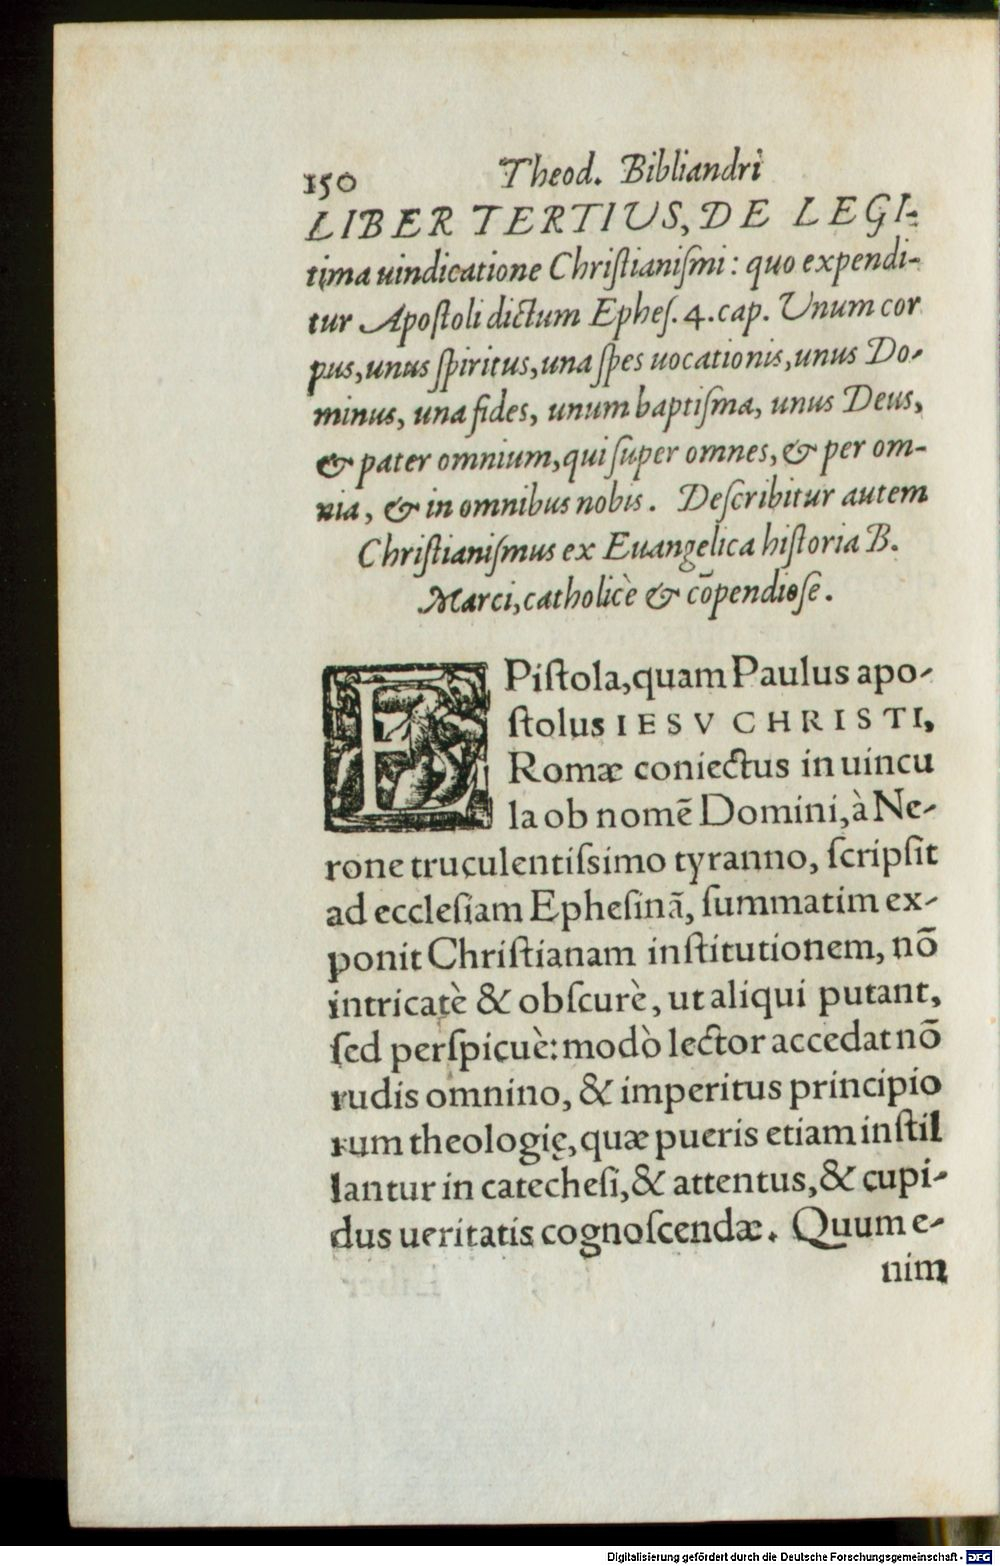 150 Theod. Bibliandri
LIBER TERTIUS, DE LEGI-
tima uindicatione Christianiſmi: quo expendi-
tur Apoſtoli dictum Epheſ. 4. cap. Unum cor
pus, unus ſpiritus, una ſpes uocationis, unus Do-
minus, una fides, unum baptiſma, unus Deus,
& pater omnium, qui ſuper omnes, & per om-
nia, & in omnibus nobis. Deſcribitur autem
Chriſtianiſmus ex Euangelica hiſtoria B.
Marci, catholicè & cōpendioſe.
EPiſtola, quam Paulus apo-
ſtolus IESV CHRISTI,
Romæ coniectus in uincu
la ob nomē Domini, à Ne-
rone truculentiſsimo tyranno, ſcripſit
ad eccleſiam Epheſinā, ſummatim ex-
ponit Chriſtianam inſtitutionem, nō
intricatè & obſcurè, ut aliqui putant,
ſed perſpicuè: modò lector accedat nō
rudis omnino, & imperitus principio
rum theologię, quæ pueris etiam inſtil
lantur in catecheſi, & attentus, & cupi-
dus ueritatis cognoſcendæ. Quum e-
nim
Digitalisierung gefördert durch die Deutsche Forschungsgemeinschaft - DFG